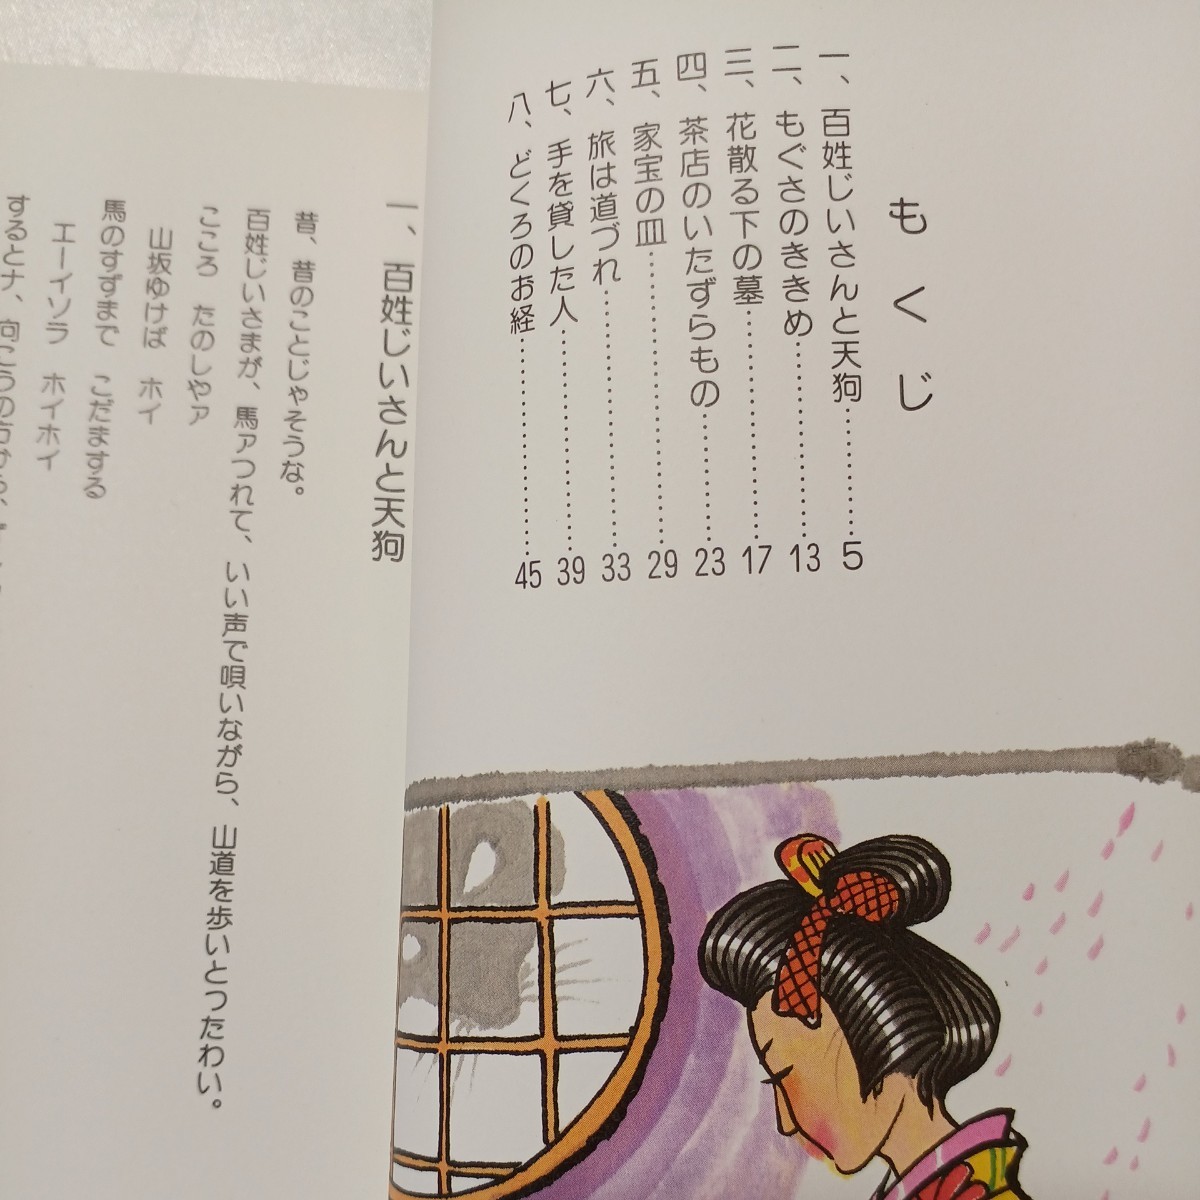 もくじ
一、百姓じいさんと天狗……………5
二、もぐさのききめ……………13
三、花散る下の墓……………17
四、茶店のいたずらもの……………23
五、家宝の皿……………29
六、旅は道づれ……………33
七、手を貸した人……………39
八、どくろのお経……………45
一、百姓じいさんと天狗
昔、昔のことじゃそうな。
百姓じいさまが、馬アつれて、いい声で唄いながら、山道を歩いとったわい。
こころ　たのしやア
山坂ゆけば　ホイ
馬のすずまで　こだまする
エーイソラ　ホイホイ
するとナ、向こうの方から、